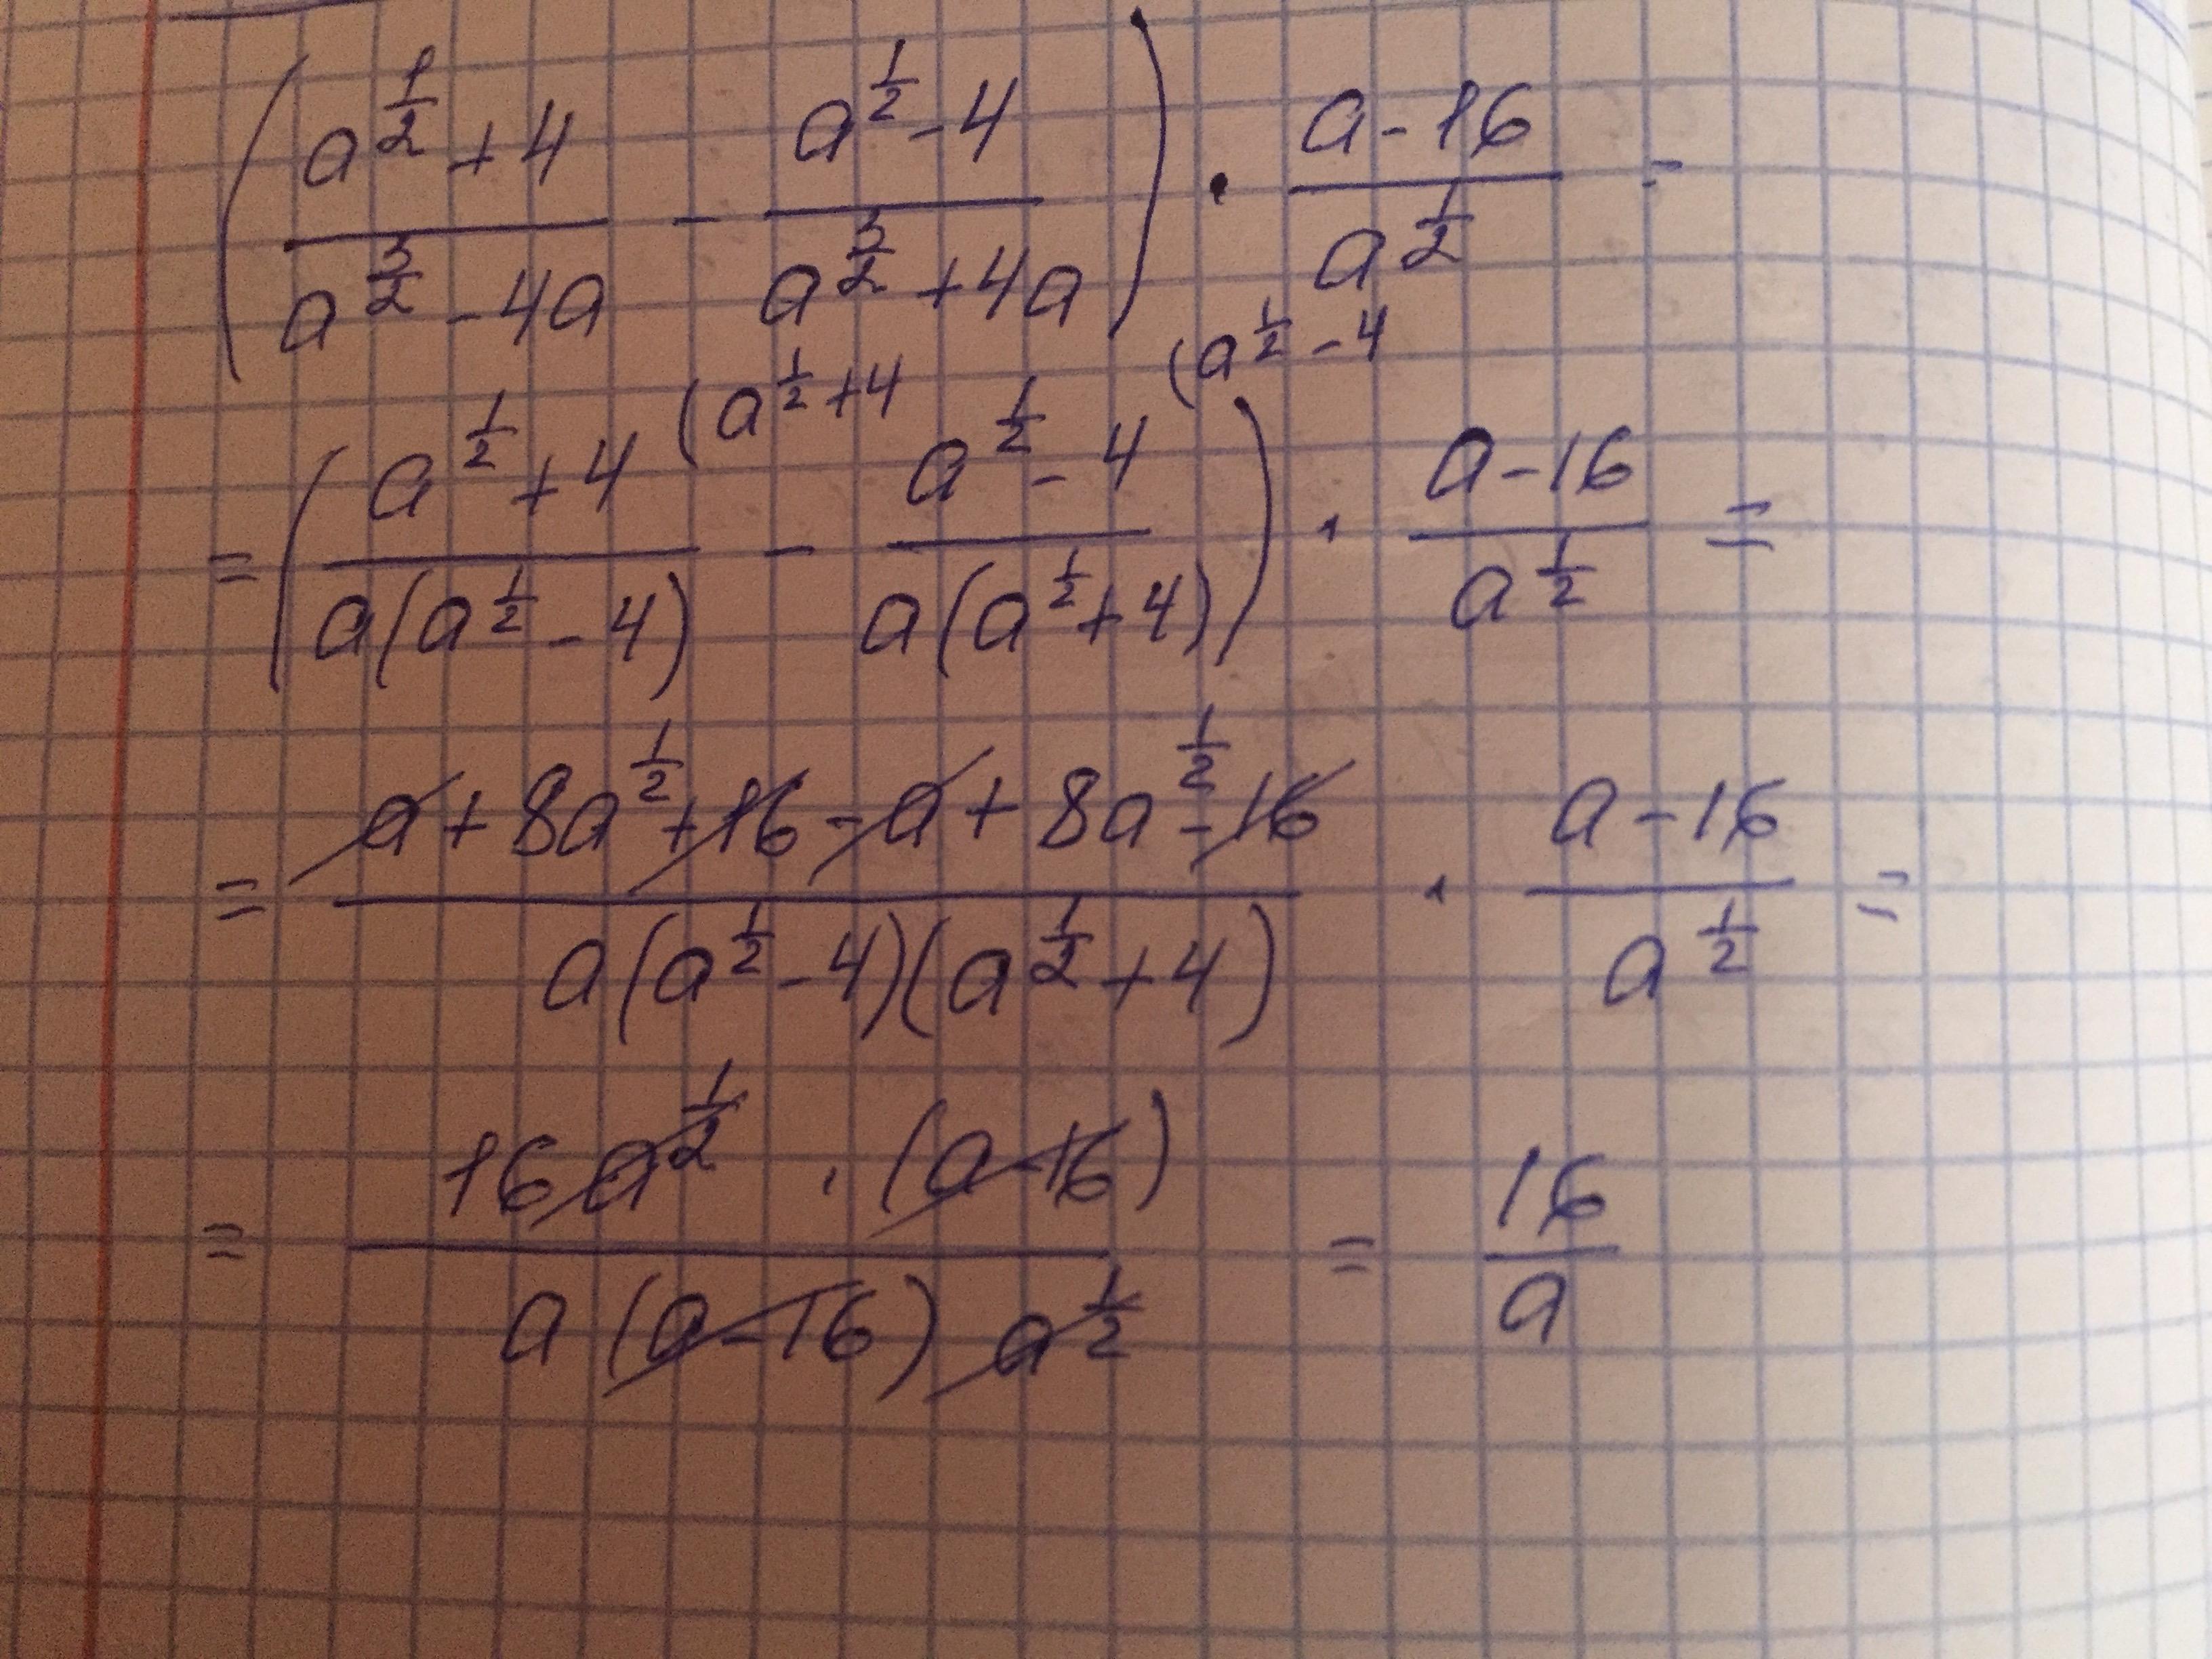 (a^{1/2}+4 / a^{3/2}-4a - a^{1/2}-4 / a^{3/2}+4a) · a-16 / a^{1/2} =
= (a^{1/2}+4 (a^{1/2}+4 / a(a^{1/2}-4) - a^{1/2}-4 (a^{1/2}-4 / a(a^{1/2}+4)) · a-16 / a^{1/2} =
= a+8a^{1/2}+16-a+8a^{1/2}-16 / a(a^{1/2}-4)(a^{1/2}+4) · a-16 / a^{1/2} =
= 16a^{1/2} · (a-16) / a(a-16)a^{1/2} = 16 / a